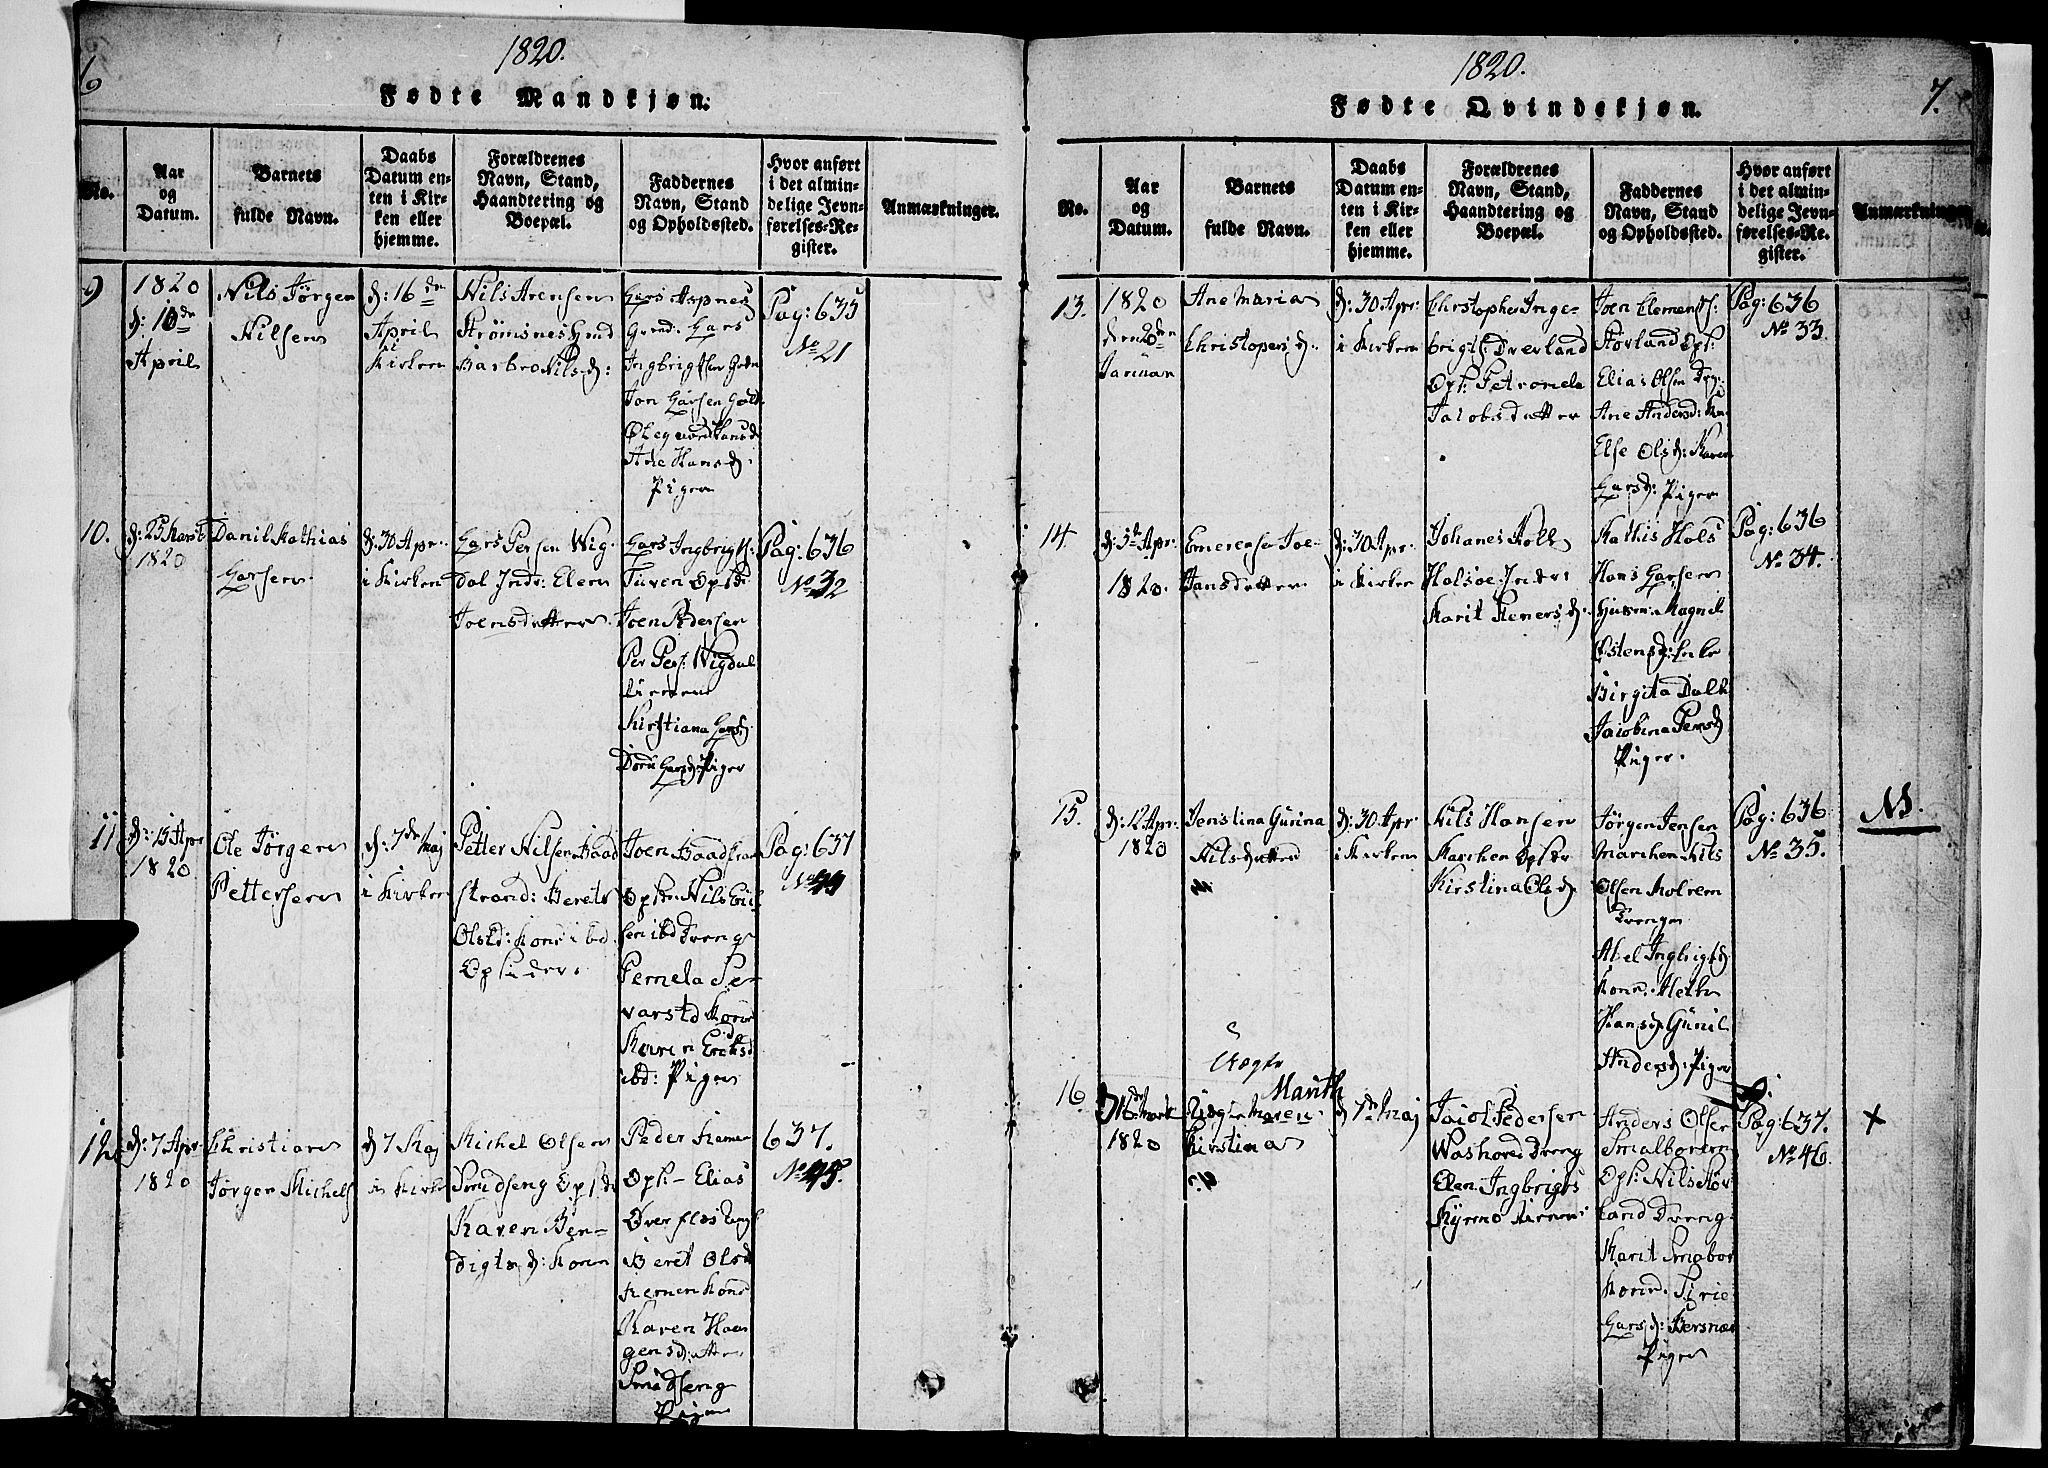 6
1820.
Fødte Mandkjøn.
No.
Aar
og
Datum.
Barnets
fulde Navn.
Daabs
Datum en-
ten i Kir-
ken eller
hjemme.
Forældrenes
Navn, Stand,
Haandtering og
Boepæl.
Faddernes
Navn, Stand
og Opholdssted.
Hvor anført
i det almin-
delige Jevn-
førelses-Re-
gister.
Anmærkninger.
9
1820
d: 10de
April
Nils Jørgen
Nilsen
d: 16de
April
i
Kirken
Nils Arensen
Strømsnes
Barbro Nilsd:
Lars
Lars
Ingbrigtsen
Jon Larsen
Hansd
Ane Hansd:
Piger
Pag: 635
No 21
10.
d: 25 Marts
1820
Danil Mathias
Larsen
d: 30 Apr:
i Kirken
Lars Persen Wig
Dal Indr: Elen
Joensdatter
Lars Ingbrigts:
Turen Opsidr
Joen Pedersen
Per Pers: Wigdal
Kirstiana Larsd:
Larsd: Piger
Pag: 636
No 32
11
d: 15 Apr
1820
Ole Jørgen
Pettersen
d: 7de Maj
i Kirken
Petter Nilsen Baad
strand: Berete
Olsd: Kone ibd
Opsider.
Joen Baadstran
Opsidr Nils Eric
sen ibd Dreng
Pernela Si-
varstd Kone
Karen Ericksd
ibd: Piger
Pag: 637
12
d: 7 Apr
1820
Christian
Jørgen Michels
d 7 Maj
i Kirke
Michel Olsen
Smedseng Opsidr
Karen Ben-
digts d: Kone
Peder
Ops- Elias
Beret Olsd
Kone
Karen Haa
gensdatter
Smedseng
Piger
637.
No 45.
7.
1820.
Fødte Qvindekjøn.
No.
Aar
og
Datum.
Barnets
fulde Navn.
Daabs
Datum en-
ten i Kir-
ken eller
hjemme.
Forældrenes
Navn, Stand,
Haandtering og
Boepæl.
Faddernes
Navn, Stand
og Opholdssted.
Hvor anført
i det almin-
delige Jevn-
førelses-Re-
gister.
Anmærkninger
13.
1820
den 20den
Januar
Ane Maria
Christophers d:
d: 30 Apr:
i Kirken
Christopher Inge-
brigts: Drevland
Ops: Petronele
Jacobsdatter
Joen Clements:
Størland Ops:
Elias Olsen Dr:
Ane Andersd:
Else Olsd: Karen
Larsd: Piger
Pag: 636
No 33.
14.
d: 5te Apr:
1820.
Emerense Jo-
hansdatter
d: 30 Apr:
i Kirken
Johanes
Holsoe Inder:
Marit Steners d:
Mathis Hols
Hans Larsen
Magnil
Østensd: Enke
Birgita Dalb
Jacobina Persd
Piger.
Pag: 636
No 34.
15.
d: 12 Apr.
1820
Jenstina Gurina
Nilsdatter
d: 30 Apr
i Kirken
Nils Hansen
Marchen Opsidr
Kirstina Ols d.
Jørgen Jensen
Marchen Nils
Olsen Molrem
Drenge
Abel Ingbrigtsd
Kone. Meth
Hansd Gunil
Andersd: Piger
Pag: 636
No 35.
NB
16
1820
Uægte
Marith
Uægte Maren
Kirstina
d 7de Maj
Jacob Pedersen
Dreng
Elen Ingbrigts
Anders Olsen
Smalboren
Ops: Nils Stør
land Dreng
Marit Smabor
Kone. Sirie
Larsd: Bersnæs
Piger
Pag: 637.
No 46.
X